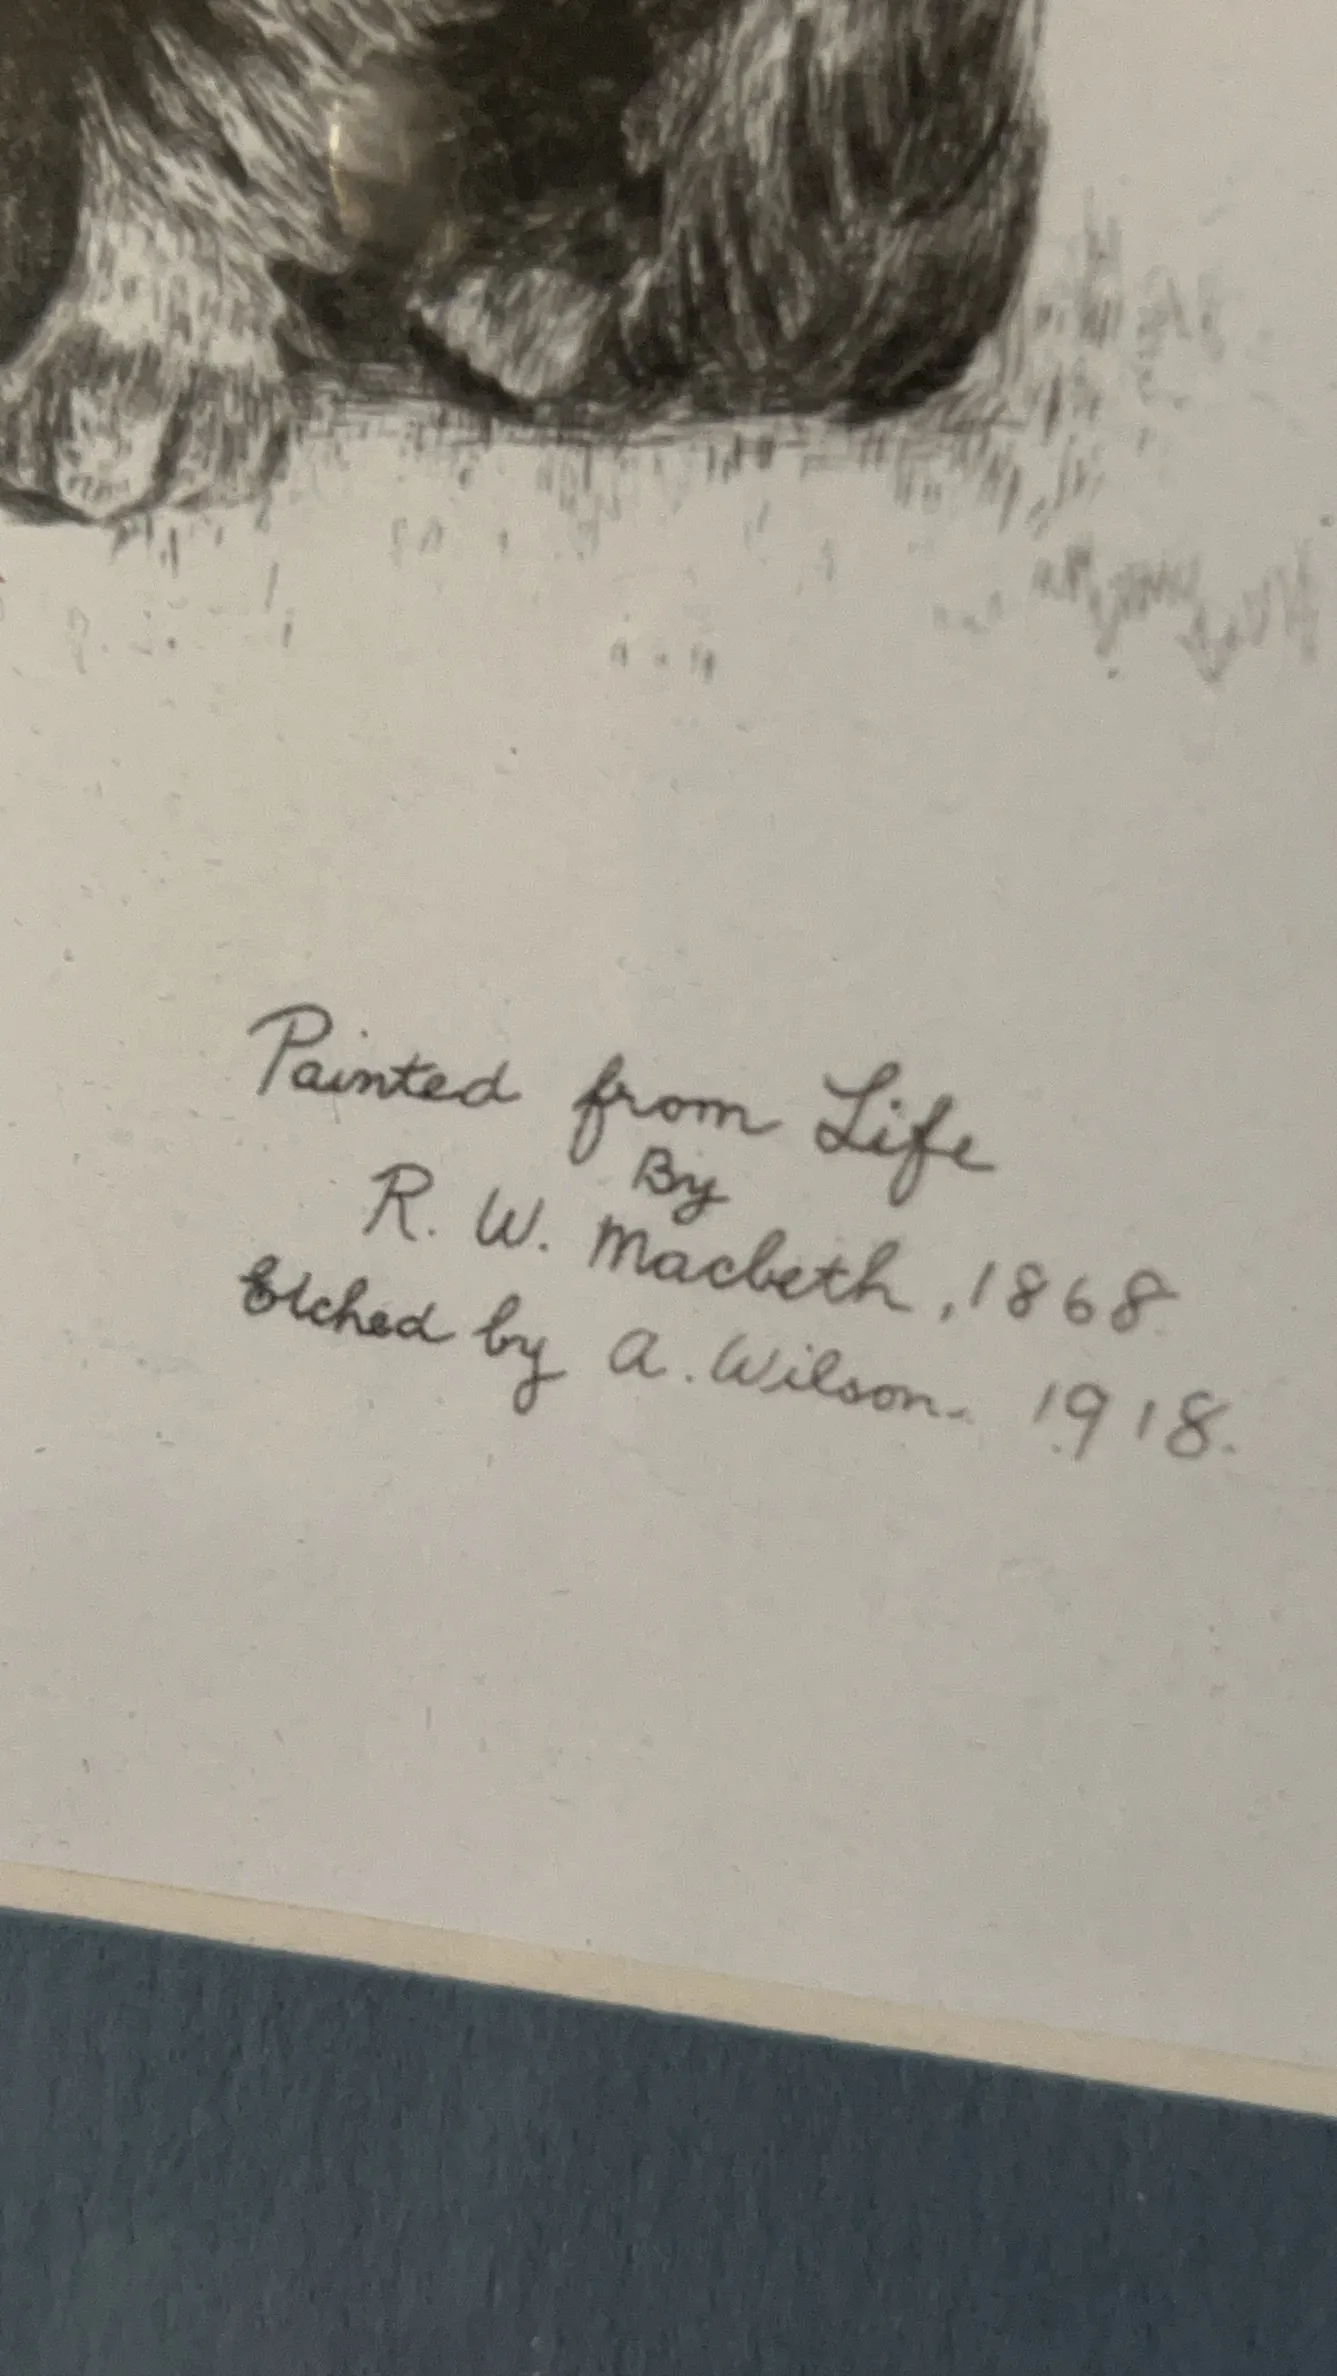 Painted from Life
By
R. W. Macbeth, 1868
Etched by A. Wilson. 1918.